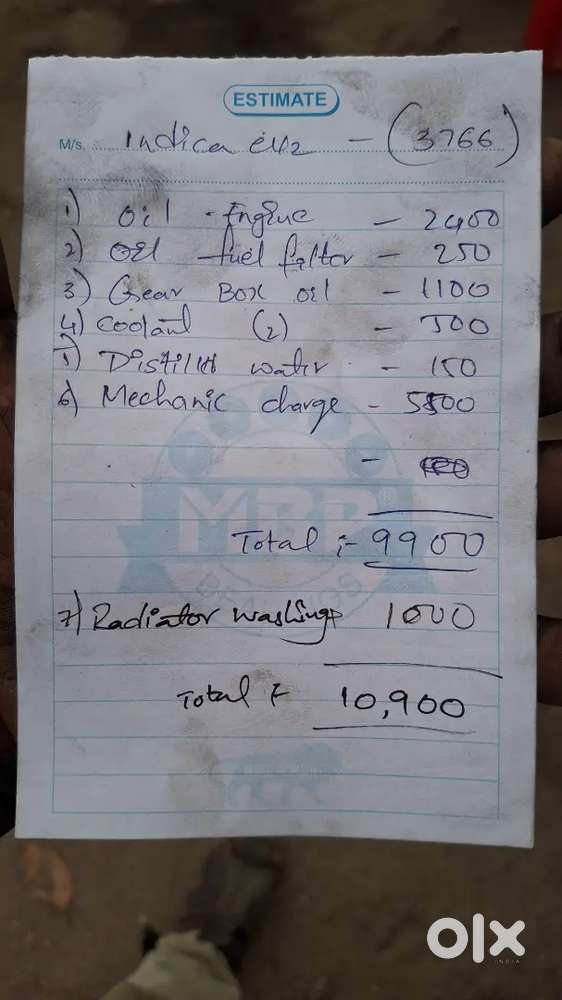 ESTIMATE
M/s. Indica eV2 - (3766)
1) Oil - Engine - 2400
2) Oil - fuel filtor - 250
3) Gear Box oil - 1100
4) Coolant (2) - 500
5) Distilld water - 150
6) Mechanic charge - 5500
-
Total ;- 9900
7) Radiator washings 1000
Total :- 10,900
MBP®
BEARINGS
olx
INDIA